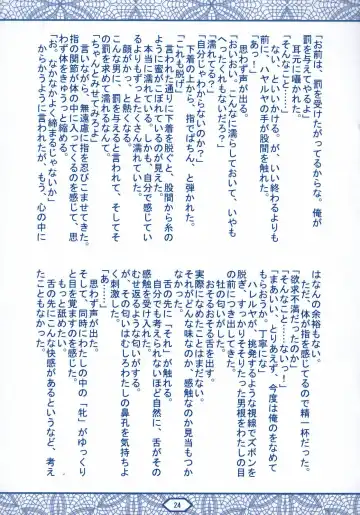 「お前は、罰を受けたがってるからな。俺が
罰を与えてやるよ」
　耳元に囁かれた。
「そんなこと……」
　ない、といいかける。が、いい終わるよりも
前に、ハレルヤの手が股間を触れた。
「あっ！」
　思わず声が出る。
「おいおい。こんなに濡らしておいて、いやも
へったくれもないだろ？」
「濡れてる？」
「自分じゃわからないのか？」
　下着の上から、指でぱちん、と弾かれた。
「これも脱げ」
　言われた通りに下着を脱ぐと、股間から糸の
ように蜜がこぼれているのが見えた。
　本当に濡れている。しかも、自分で感じてい
るよりもずっとたくさん濡れていた。
　頬が熱くなる。
　こんな男に、罰を与えると言われて、そしてそ
の罰を求めて濡れるなんて。
「ちゃんとみせてみろよ」
　言いながら、無遠慮に指を忍びこませてきた。
　指の関節が体の中に入ってくるのを感じて、思
わず体をきゅうっと縮める。
「お。なかなかよく締まるじゃないか」
　からかうように言われたが、もう、心の中に
はなんの余裕もなかった。
　ただ、体が指を感じてるので精一杯だった。
「欲求不満だったのか？」
「そんなこと……ないっ！」
「まあいい、とりあえず、今度は俺のをなめて
もらおうか。丁寧にな」
　ハレルヤが、挑発するような視線でズボンを
脱ぎ、すっかりそそりたった男根をわたしの目
の前につき出してきた。
　牡の匂いがした。
　おそるおそる、舌を出す。
　実際になめたことなどはまだない。
　それがどんな味なのか、感触なのか見当もつか
なかった。
　舌の先に「それ」が触れる。
　自分でも考えられないほど自然に、舌がその
感触を受け入れた。
　むせ返るような匂いがする。
　が、その匂いはむしろわたしの鼻孔を気持ちよ
く刺激した。
「あ……」
　思わず声が出た。
　そして、同時にわたしの中の「牝」がゆっくり
と目をさましていく。
　もっと舐めたい。
　舌の先にこんな快感があるというなど、考え
たこともなかった。
24